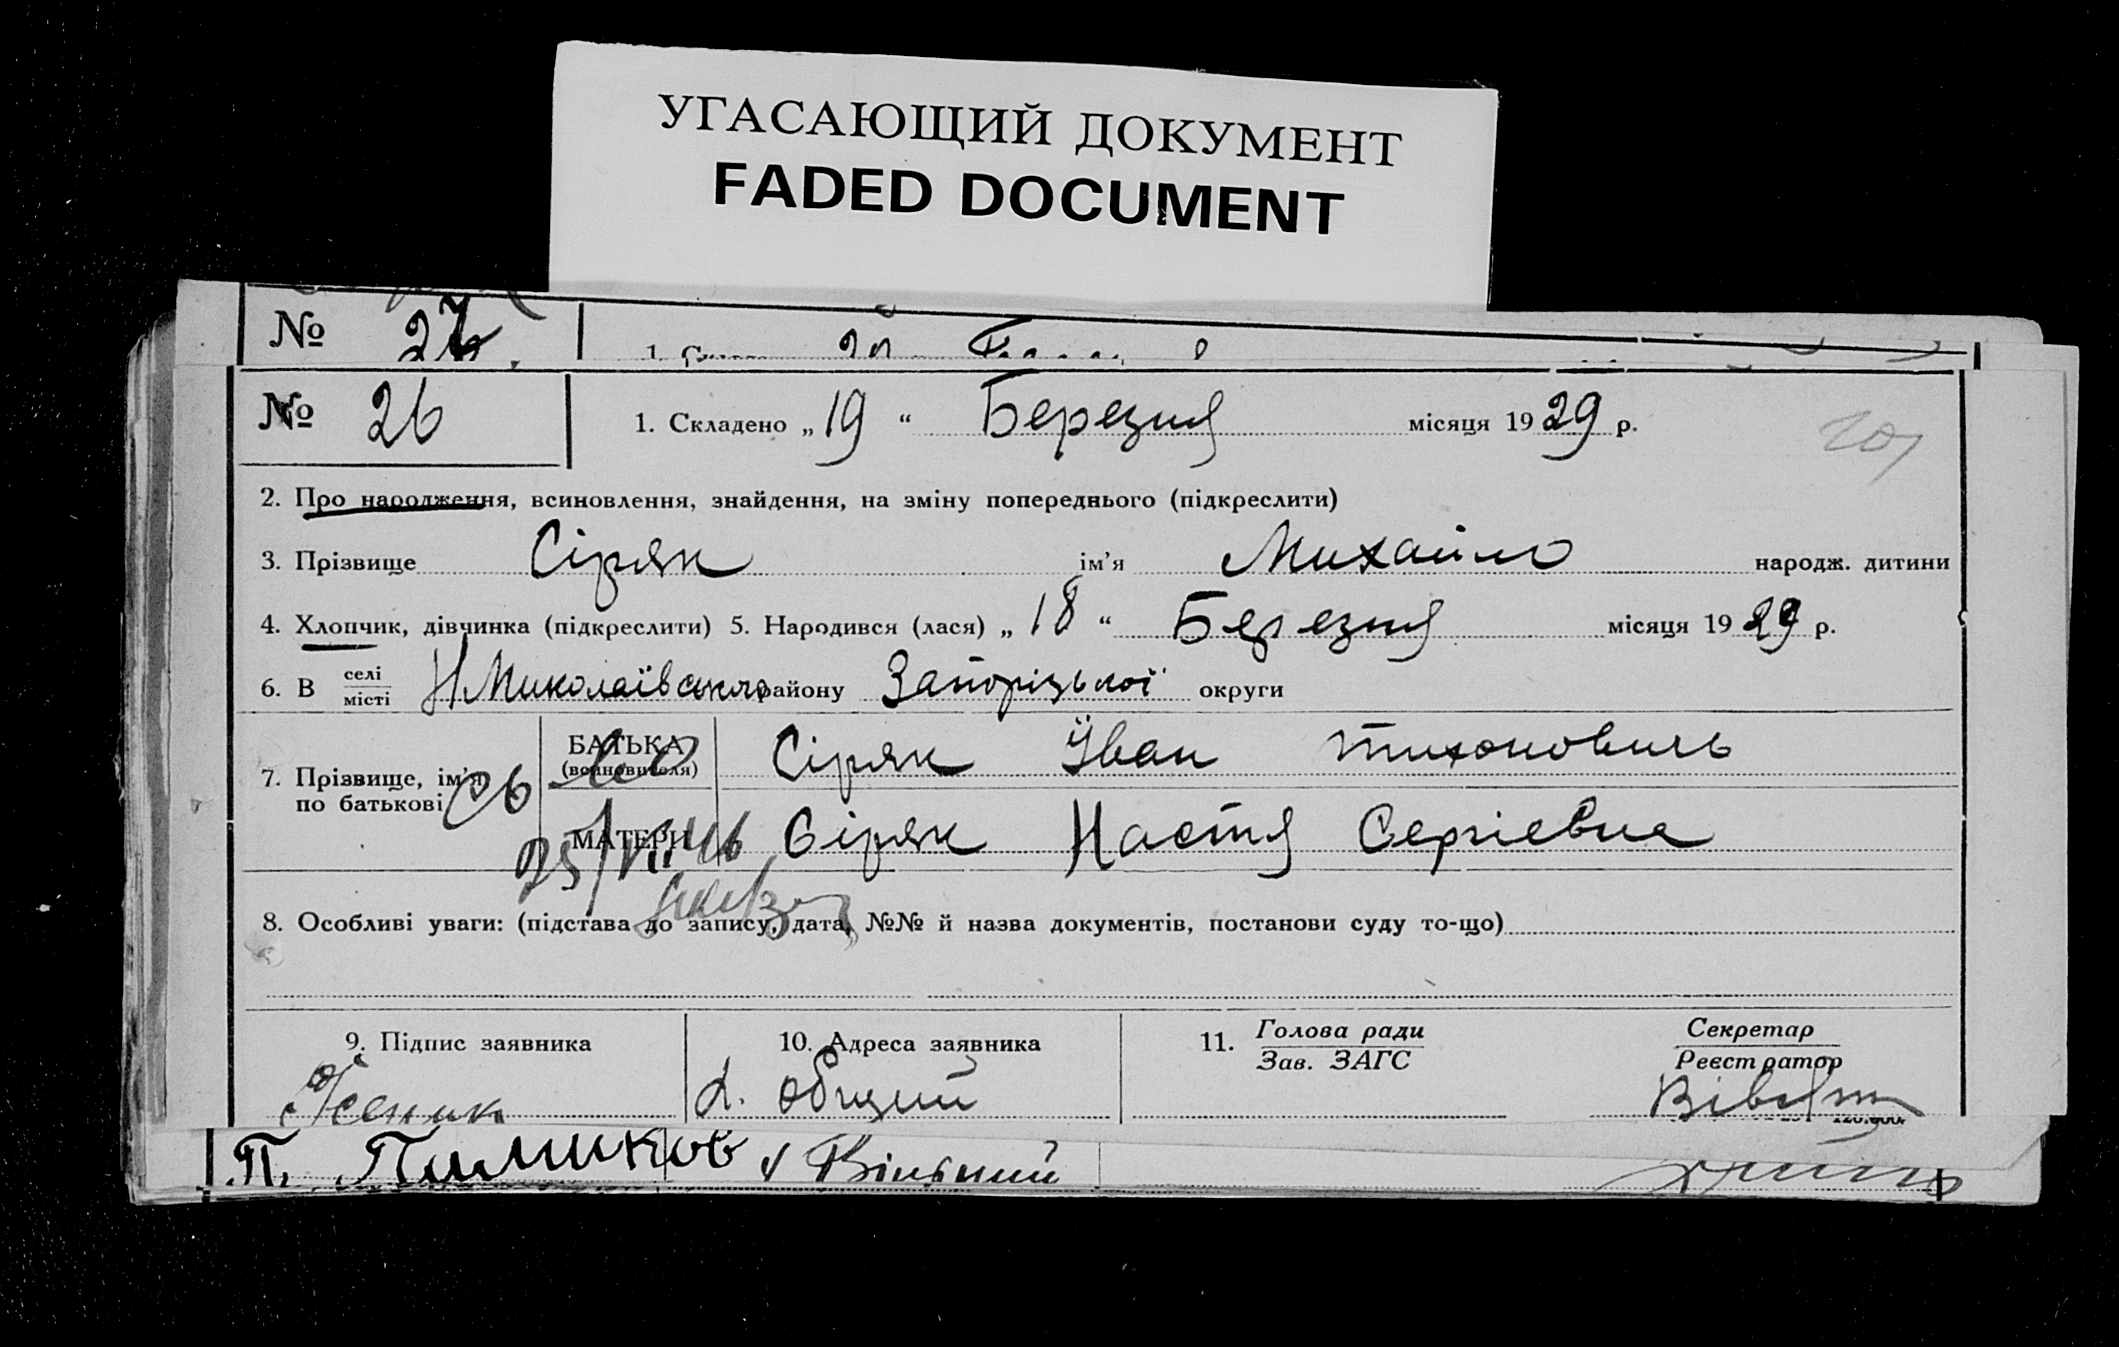 УГАСАЮЩИЙ ДОКУМЕНТ
FADED DOCUMENT
№ 27
№ 26
1. Складено „ 19 “ Березня місяця 19 29 р.
2. Про народження, всиновлення, знайдення, на зміну попереднього (підкреслити)
3. Прізвище Сіряк ім’я Михайло народж. дитини
4. Хлопчик, дівчинка (підкреслити) 5. Народився (лася) „ 18 “ Березня місяця 19 29 р.
6. В селі місті Н Миколаївського району Запорізької округи
7. Прізвище, ім’я по батькові
БАТЬКА (всиновителя) Сіряк Їван Тихонович
МАТЕРИ Сіряк Настя Сергієвна
8. Особливі уваги: (підстава до запису, дата, №№ й назва документів, постанови суду то-що)
9. Підпис заявника
10. Адреса заявника
11. Голова ради
Зав. ЗАГС
Секретар
Реєстратор
Х. Общий